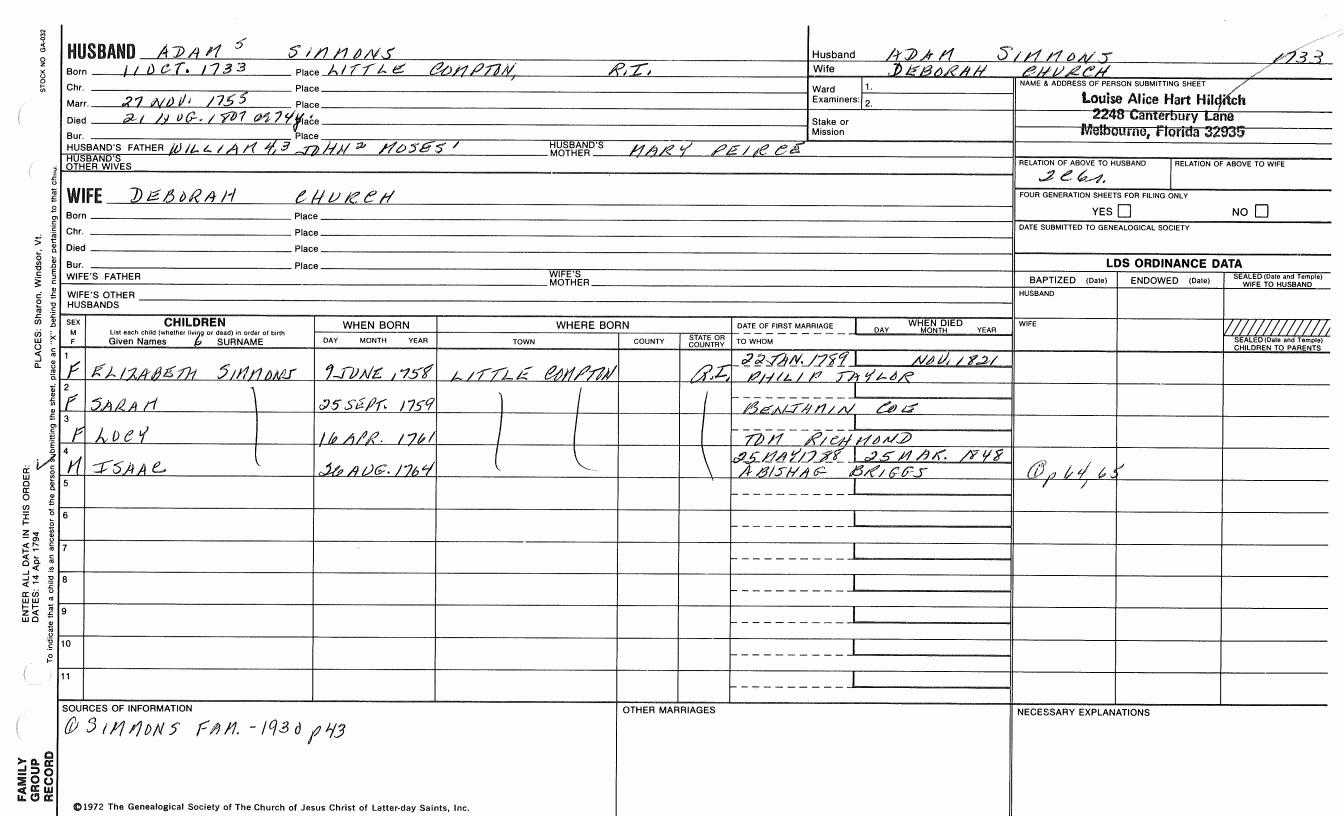 STOCK NO GA-032
HUSBAND ADAM 5 SIMMONS
Born 11 OCT. 1733 Place LITTLE COMPTON, R.I.
Chr. Place
Marr. 27 NOV. 1755 Place
Died 21 AUG. 1807 Place
Bur. Place
HUSBAND'S FATHER WILLIAM 4,3 JOHN 2 MOSES 1 HUSBAND'S MOTHER MARY PEIRCE
HUSBAND'S OTHER WIVES
WIFE DEBORAH CHURCH
Born Place
Chr. Place
Died Place
Bur. Place
WIFE'S FATHER WIFE'S MOTHER
WIFE'S OTHER HUSBANDS
Husband ADAM SIMMONS 1733
Wife DEBORAH CHURCH
Ward Examiners: 1. 2.
Stake or Mission
NAME & ADDRESS OF PERSON SUBMITTING SHEET
Louise Alice Hart Hilditch
2248 Canterbury Lane
Melbourne, Florida 32935
RELATION OF ABOVE TO HUSBAND RELATION OF ABOVE TO WIFE
FOUR GENERATION SHEETS FOR FILING ONLY
YES NO
DATE SUBMITTED TO GENEALOGICAL SOCIETY
LDS ORDINANCE DATA
BAPTIZED (Date) ENDOWED (Date) SEALED (Date and Temple) WIFE TO HUSBAND
HUSBAND
WIFE
SEALED (Date and Temple) CHILDREN TO PARENTS
SEX M F CHILDREN WHEN BORN WHERE BORN DATE OF FIRST MARRIAGE WHEN DIED
List each child (whether living or dead) in order of birth
Given Names SURNAME DAY MONTH YEAR TOWN COUNTY STATE OR COUNTRY TO WHOM DAY MONTH YEAR
1 22 JAN. 1789 NOV. 1821
F ELIZABETH SIMMONS 9 JUNE 1758 LITTLE COMPTON R.I. PHILIP TAYLOR
2
F SARAH 25 SEPT. 1759 BENJAMIN COE
3
F LUCY 16 APR. 1761 TOM RICHMOND
4 25 MAY 1788 25 MAR. 1848
M ISAAC 26 AUG. 1764 ABISHAG BRIGGS ① p 64, 65
5
6
7
8
9
10
11
SOURCES OF INFORMATION
① SIMMONS FAM. - 1930 p 43
OTHER MARRIAGES
NECESSARY EXPLANATIONS
©1972 The Genealogical Society of The Church of Jesus Christ of Latter-day Saints, Inc.
ENTER ALL DATA IN THIS ORDER:
DATES: 14 Apr 1794
PLACES: Sharon, Windsor, Vt.
To indicate that a child is an ancestor of the person submitting the sheet, place an "X" behind the number pertaining to that child.
FAMILY
GROUP
RECORD